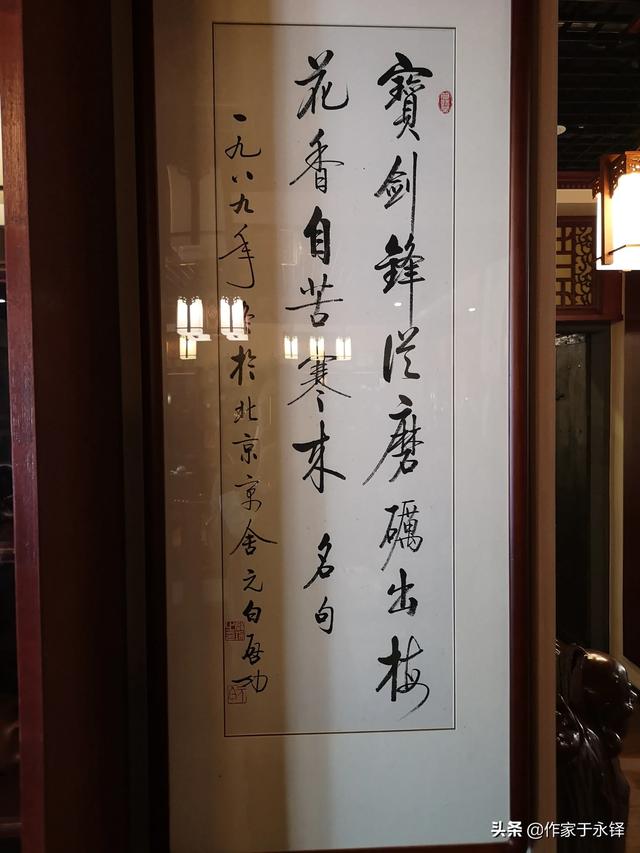 寶劍鋒從磨礪出梅
花香自苦寒来 名句
一九八九年 於北京京舍元白启功
头条 @作家于永铎